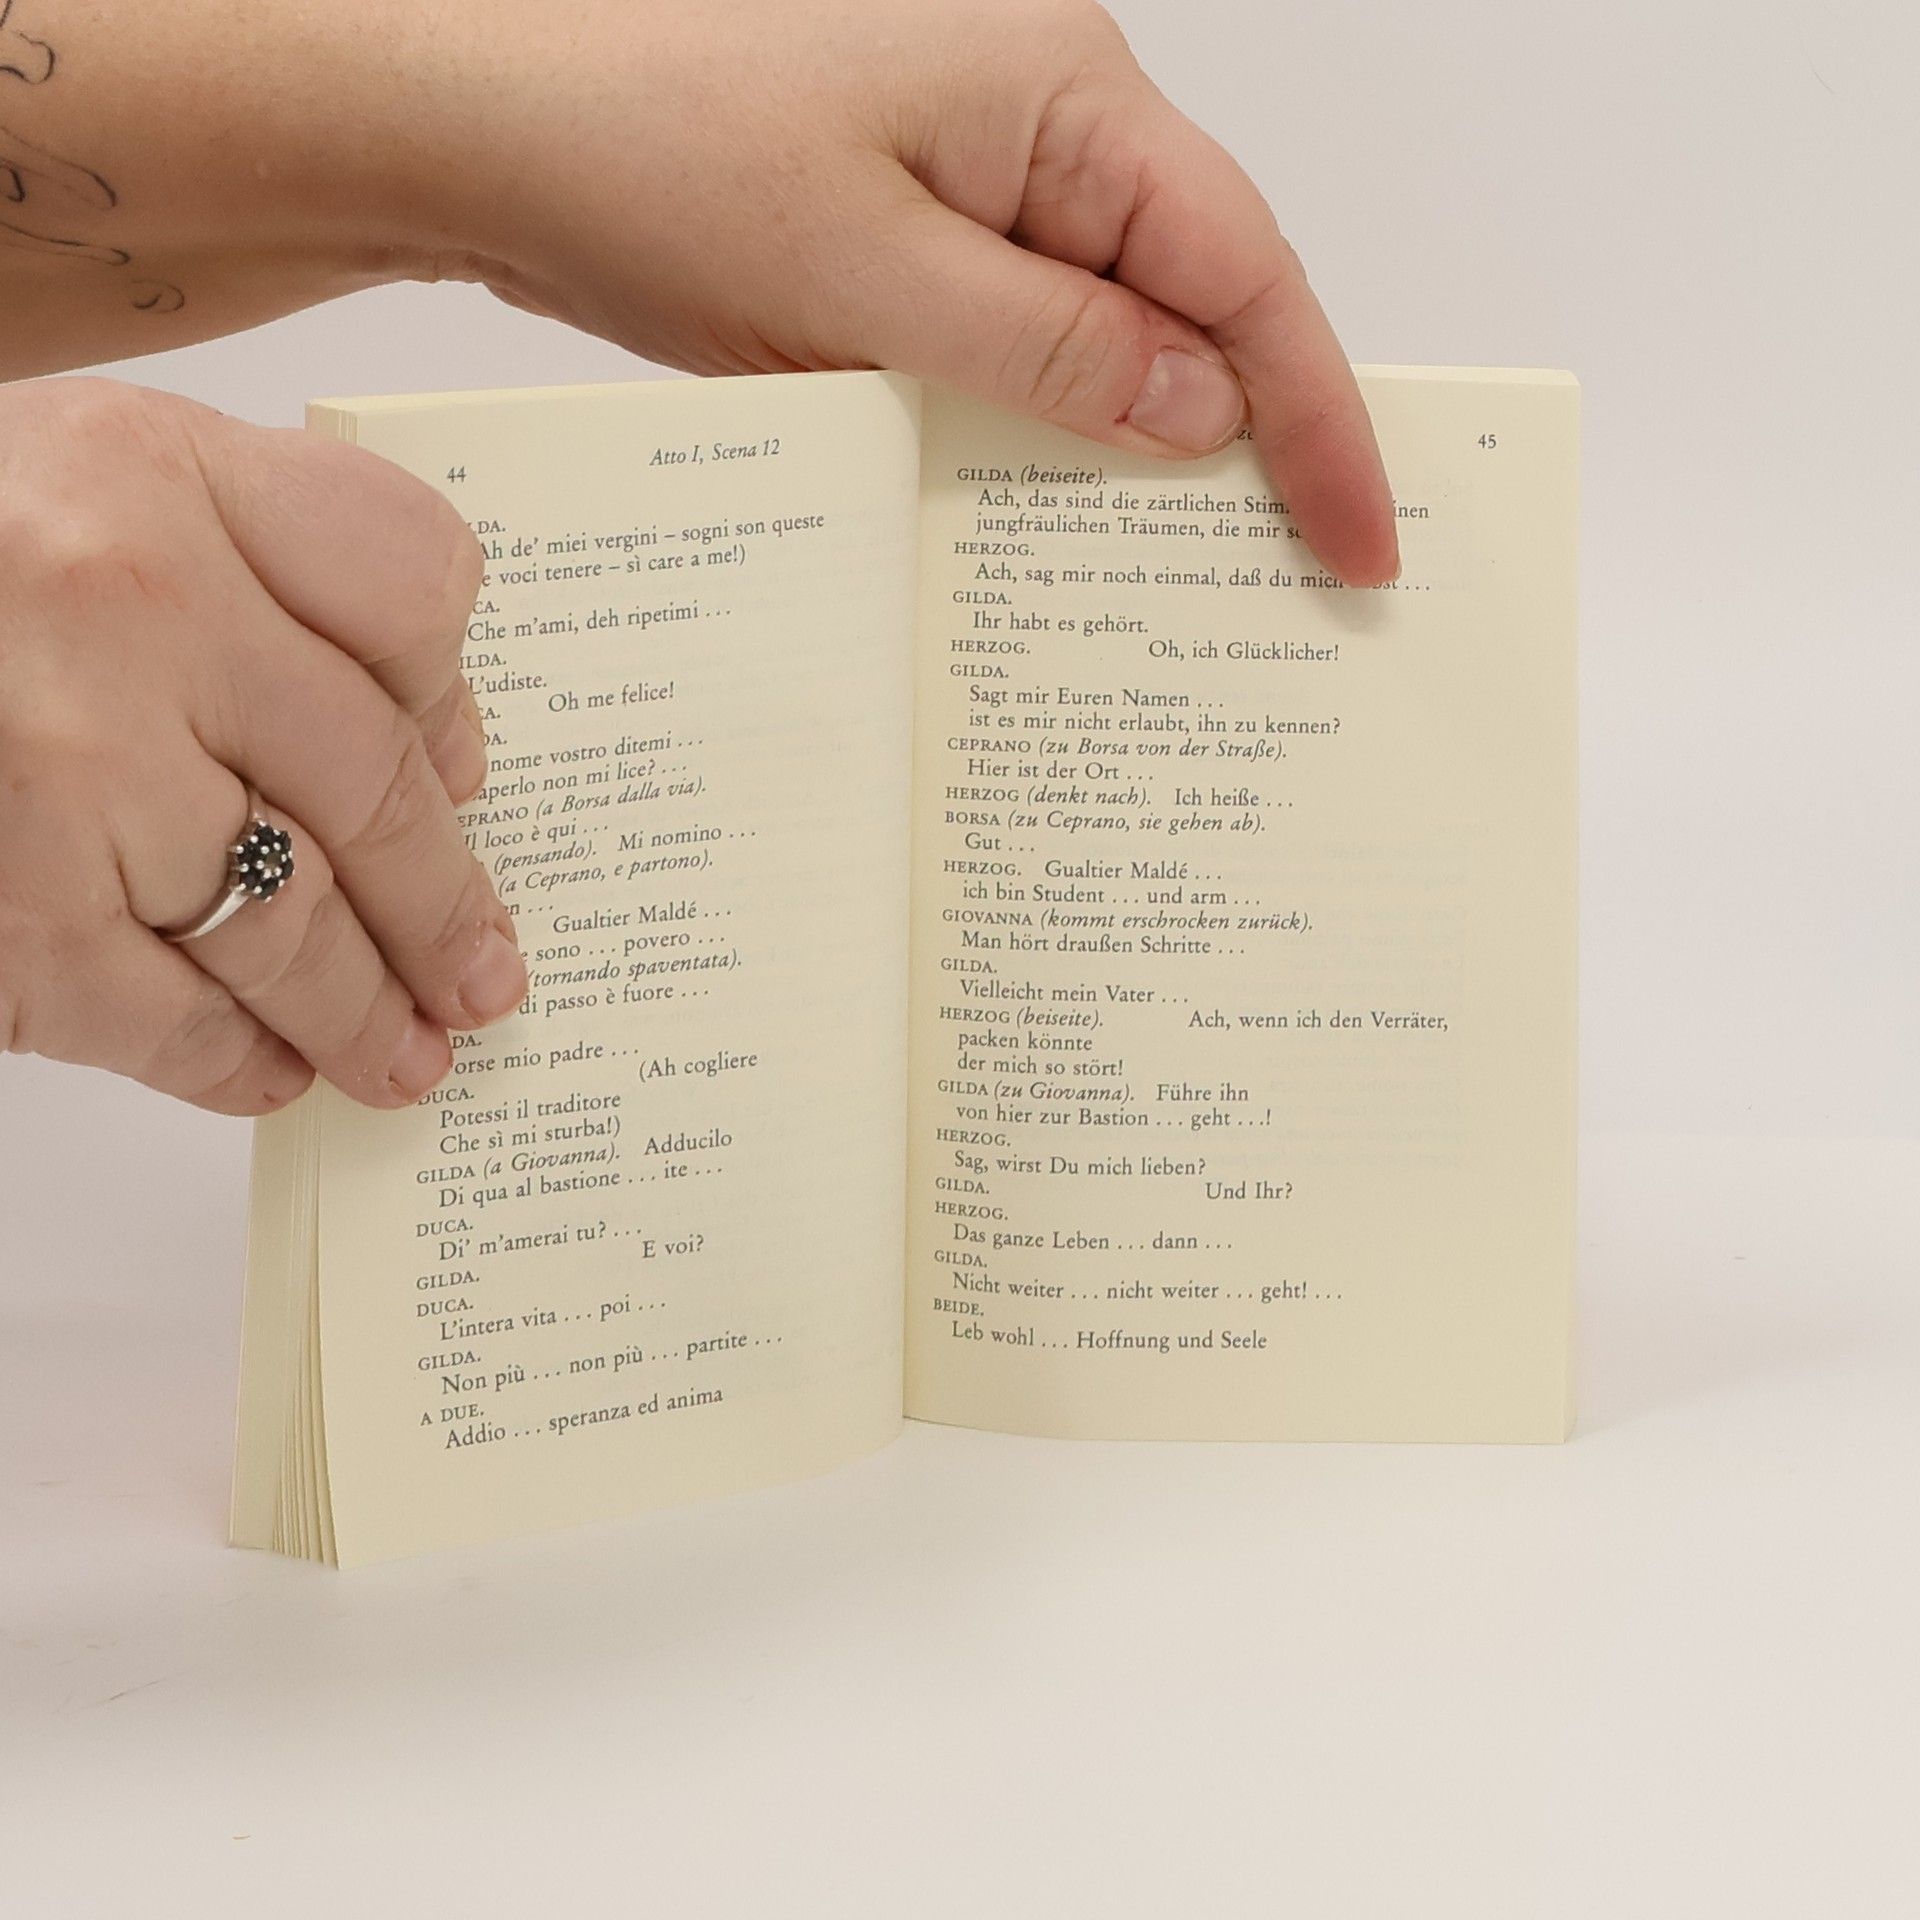 44
Atto I, Scena 12
Ah de' miei vergini – sogni son queste
voci tenere – sì care a me!)
Che m'ami, deh ripetimi ...
L'udiste.
Oh me felice!
nome vostro ditemi ...
non mi lice? ...
(a Borsa dalla via).
Il loco è qui ...
(pensando). Mi nomino ...
(a Ceprano, e partono).
Gualtier Maldé ...
sono ... povero ...
(tornando spaventata).
di passo è fuore ...
mio padre ...
(Ah cogliere
DUCA.
Potessi il traditore
Che sì mi sturba!)
GILDA (a Giovanna). Adducilo
Di qua al bastione ... ite ...
DUCA.
Di' m'amerai tu? ...
E voi?
GILDA.
DUCA.
L'intera vita ... poi ...
GILDA.
Non più ... non più ... partite ...
A DUE.
Addio ... speranza ed anima
45
GILDA (beiseite).
Ach, das sind die zärtlichen
jungfräulichen Träumen, die mir
HERZOG.
Ach, sag mir noch einmal, daß du mich ...
GILDA.
Ihr habt es gehört.
HERZOG. Oh, ich Glücklicher!
GILDA.
Sagt mir Euren Namen ...
ist es mir nicht erlaubt, ihn zu kennen?
CEPRANO (zu Borsa von der Straße).
Hier ist der Ort ...
HERZOG (denkt nach). Ich heiße ...
BORSA (zu Ceprano, sie gehen ab).
Gut ...
HERZOG. Gualtier Maldé ...
ich bin Student ... und arm ...
GIOVANNA (kommt erschrocken zurück).
Man hört draußen Schritte ...
GILDA.
Vielleicht mein Vater ...
HERZOG (beiseite). Ach, wenn ich den Verräter,
packen könnte
der mich so stört!
GILDA (zu Giovanna). Führe ihn
von hier zur Bastion ... geht ...!
HERZOG.
Sag, wirst Du mich lieben?
GILDA. Und Ihr?
HERZOG.
Das ganze Leben ... dann ...
GILDA.
Nicht weiter ... nicht weiter ... geht! ...
BEIDE.
Leb wohl ... Hoffnung und Seele